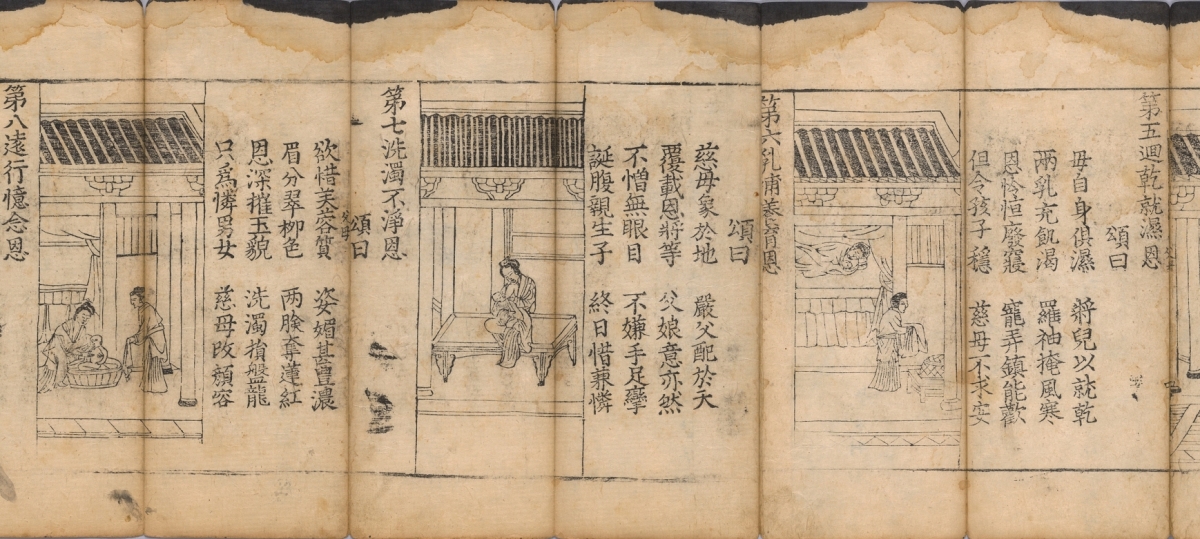 第五迴乾就濕恩
頌曰
母自身俱濕 將兒以就乾
兩乳充飢渴 羅袖掩風寒
恩怜恒廢寢 寵弄鎮能歡
但令孩子穩 慈母不求安
第六乳甫養育恩
頌曰
慈母象於地 嚴父配於天
覆載恩將等 父娘意亦然
不憎無眼目 不嫌手足攣
誕腹親生子 終日惜兼憐
第七洗濁不淨恩
頌曰
欲惜芙蓉質 姿媚甚豊濃
眉分翠柳色 两臉奪蓮紅
恩深摧玉貌 洗濁損盤龍
只為憐男女 慈母改顏容
第八遠行憶念恩